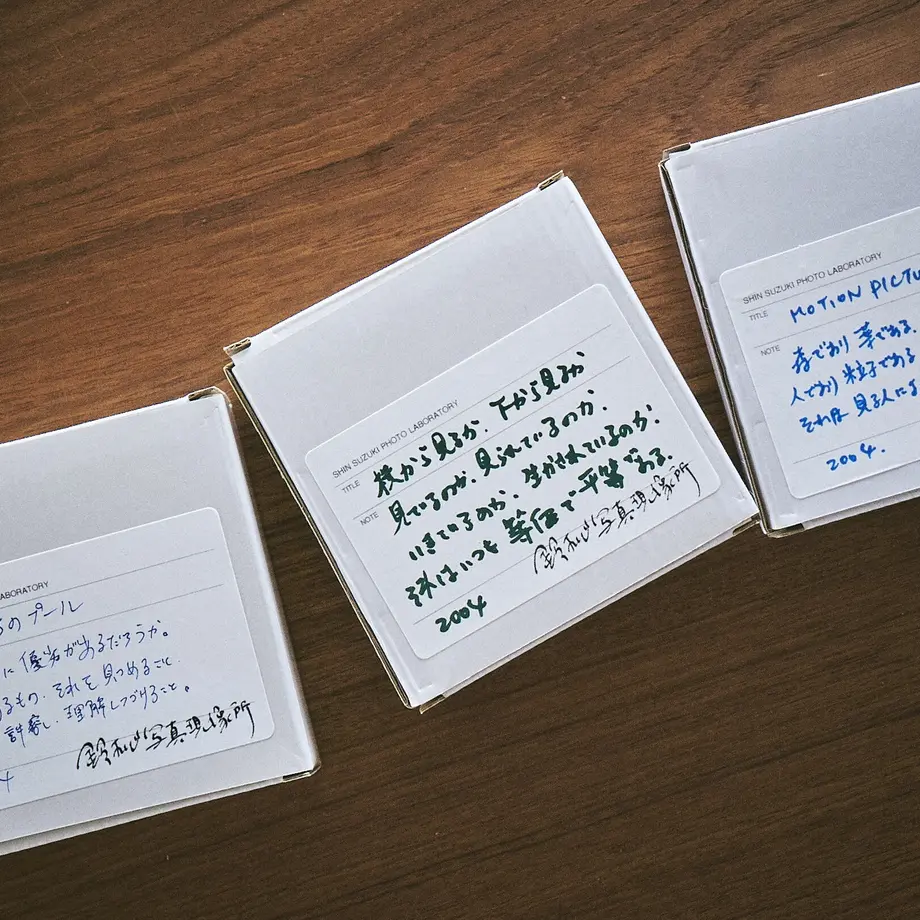 ABORATORY
のプール
に優劣があるだろうか。
るもの、それを見つめること
許容し、理解しつづけること。
鈴木心写真現像所
4
SHIN SUZUKI PHOTO LABORATORY
TITLE 横から見るか、下から見るか
NOTE 見ているのか、見られているのか。
いきているのか、生かされているのか。
それはいつも等価で平等である。
鈴木心写真現像所
2004
SHIN SUZUKI PHOTO LABORATORY
TITLE MOTION PICTU
NOTE 森であり 葉である
人であり 粒子である
それは 見る人によ
2004.